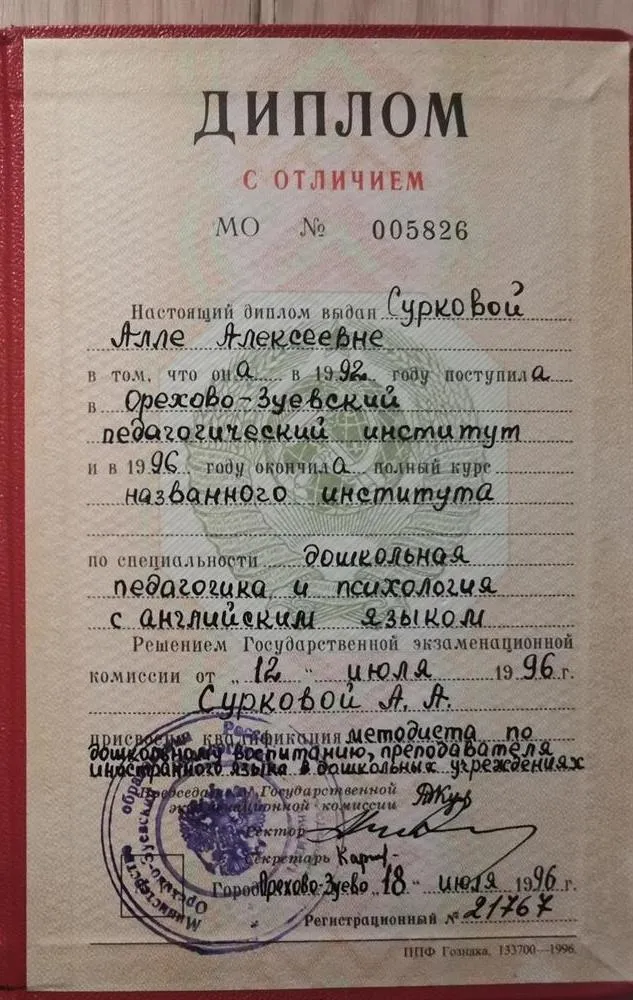 ДИПЛОМ
С ОТЛИЧИЕМ
МО № 005826
Настоящий диплом выдан Сурковой
Алле Алексеевне
в том, что она в 1992 году поступила
в Орехово-Зуевский
педагогический институт
и в 1996 году окончила полный курс
названного института
по специальности дошкольная
педагогика и психология
с английским языком
Решением Государственной экзаменационной
комиссии от „12“ июля 1996 г.
Сурковой А. А.
присвоена квалификация методиста по
дошкольному воспитанию, преподавателя
иностранного языка в дошкольных учреждениях
Председатель Государственной
экзаменационной комиссии
Ректор
Секретарь
Город Орехово-Зуево „18“ июля 1996 г.
Регистрационный № 21767
ППФ Гознака. 133700—1996.